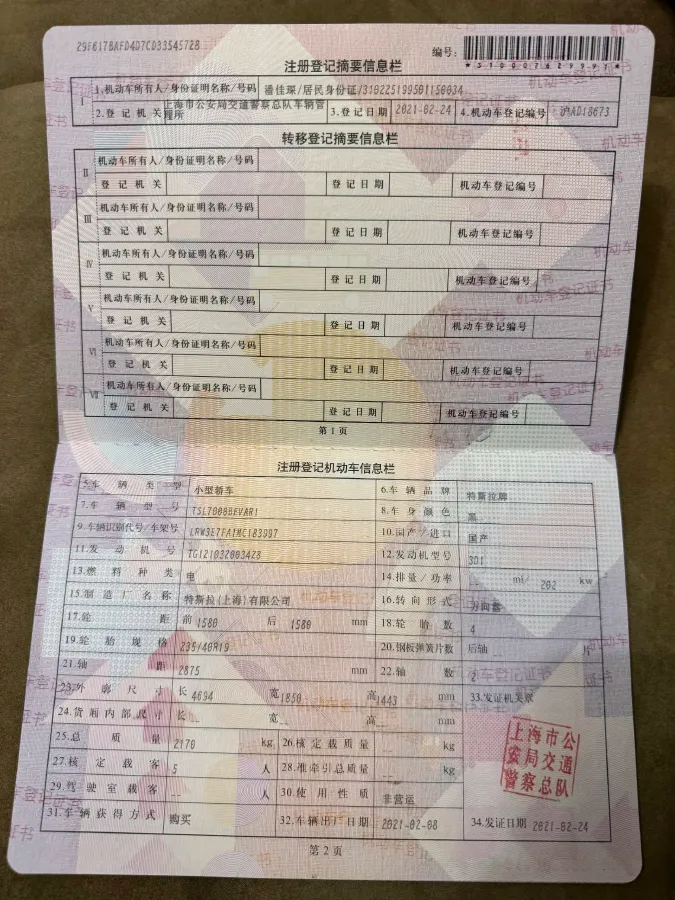 29F617BAFD4D7CD33545728
编号:
*310007629991*
注册登记摘要信息栏
I 1.机动车所有人/身份证明名称/号码 潘佳琛/居民身份证/310225199501150034
2.登记机关 上海市公安局交通警察总队车辆管理所 3.登记日期 2021-02-24 4.机动车登记编号 沪AD18673
转移登记摘要信息栏
II 机动车所有人/身份证明名称/号码
登记机关 登记日期 机动车登记编号
III 机动车所有人/身份证明名称/号码
登记机关 登记日期 机动车登记编号
IV 机动车所有人/身份证明名称/号码
登记机关 登记日期 机动车登记编号
V 机动车所有人/身份证明名称/号码
登记机关 登记日期 机动车登记编号
VI 机动车所有人/身份证明名称/号码
登记机关 登记日期 机动车登记编号
VII 机动车所有人/身份证明名称/号码
登记机关 登记日期 机动车登记编号
第1页
注册登记机动车信息栏
5.车辆类型 小型轿车 6.车辆品牌 特斯拉牌
7.车辆型号 TSL7000BEVAR1 8.车身颜色 黑
9.车辆识别代号/车架号 LRW3E7FA1MC183997 10.国产/进口 国产
11.发动机号 TG121032003428 12.发动机型号 3D1
13.燃料种类 电 14.排量/功率 ml/ 202 kw
15.制造厂名称 特斯拉(上海)有限公司 16.转向形式 方向盘
17.轮距 前 1580 后 1580 mm 18.轮胎数 4
19.轮胎规格 235/40R19 20.钢板弹簧片数 后轴 -- 片
21.轴距 2875 mm 22.轴数 2
23.外廓尺寸 长 4694 宽 1850 高 1443 mm 33.发证机关章
24.货厢内部尺寸 长 -- 宽 -- 高 -- mm
25.总质量 2170 kg 26.核定载质量 -- kg
27.核定载客 5 人 28.准牵引总质量 -- kg
29.驾驶室载客 -- 人 30.使用性质 非营运
上海市公
安局交通
警察总队
31.车辆获得方式 购买 32.车辆出厂日期 2021-02-08 34.发证日期 2021-02-24
第2页